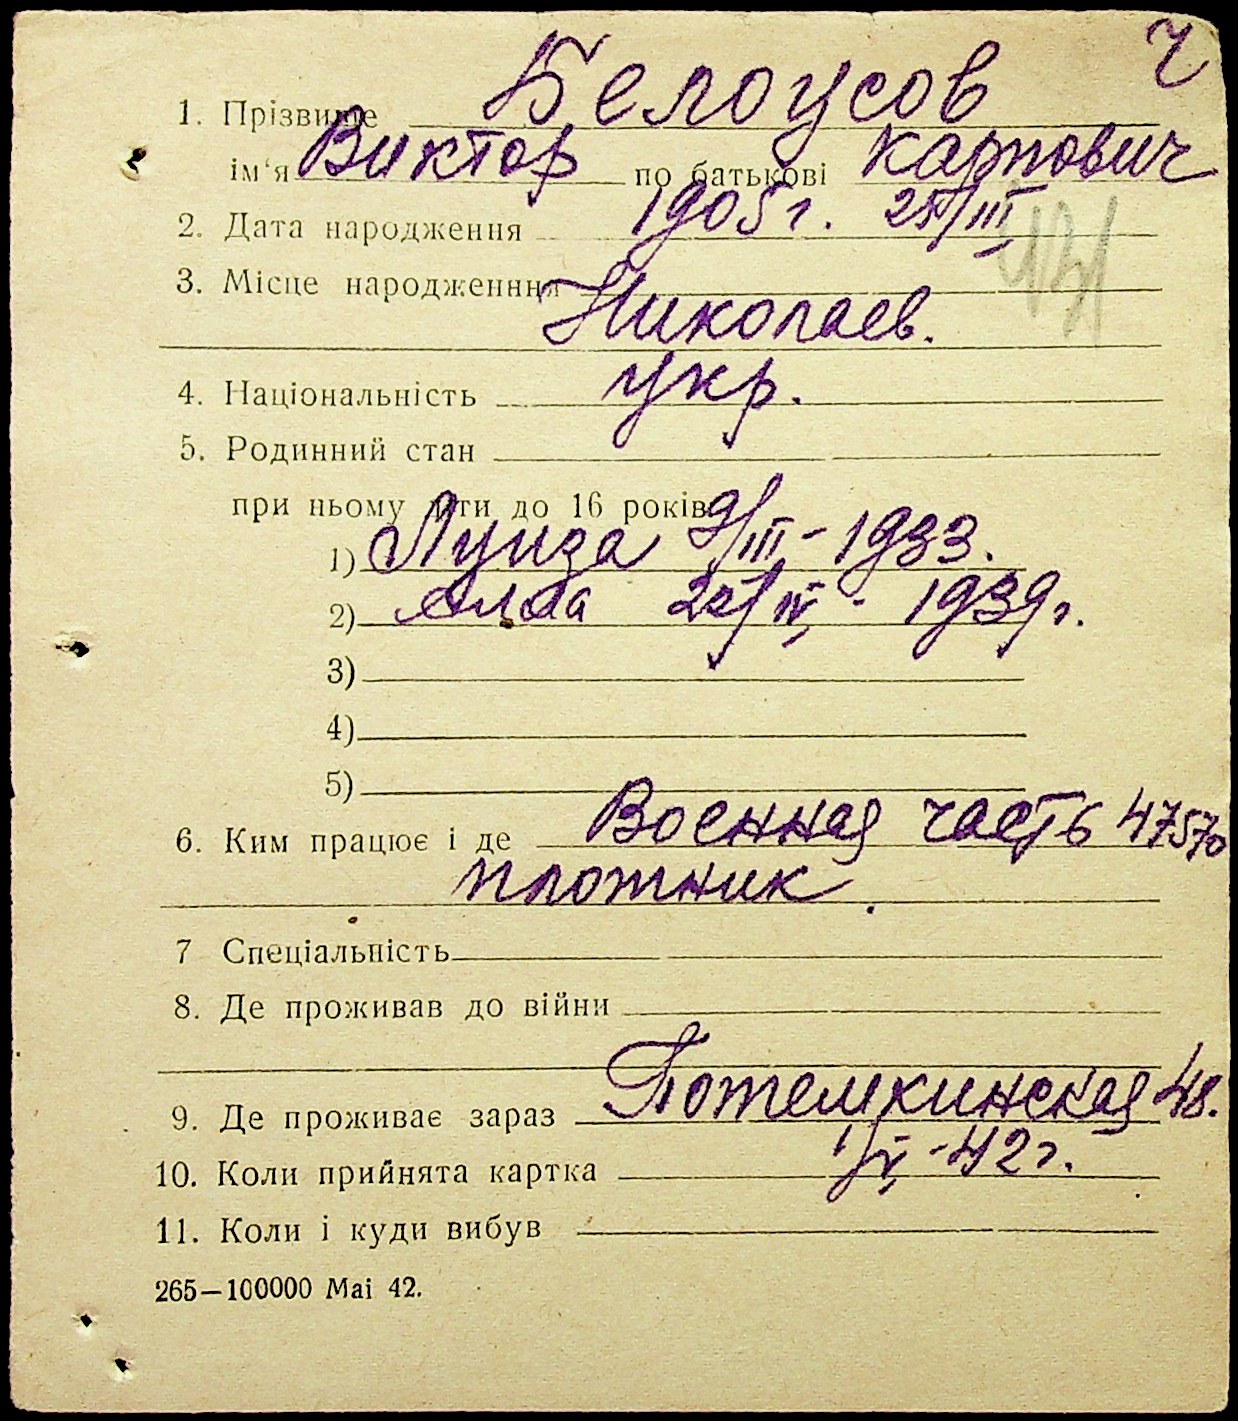 Ч
1. Прізвище Белоусов
ім'я Виктор по батькові Карпович
2. Дата народження 1905 г. 25/III
3. Місце народженння
Николаев.
4. Національність укр.
5. Родинний стан
при ньому діти до 16 років
1) Луиза 9/III - 1933.
2) Алла 25/IV - 1939 г.
3)
4)
5)
6. Ким працює і де Военная часть 47570
плотник.
7 Спеціальність
8. Де проживав до війни
9. Де проживає зараз Потемкинская 48.
10. Коли прийнята картка 1/V - 42 г.
11. Коли і куди вибув
265—100000 Mai 42.